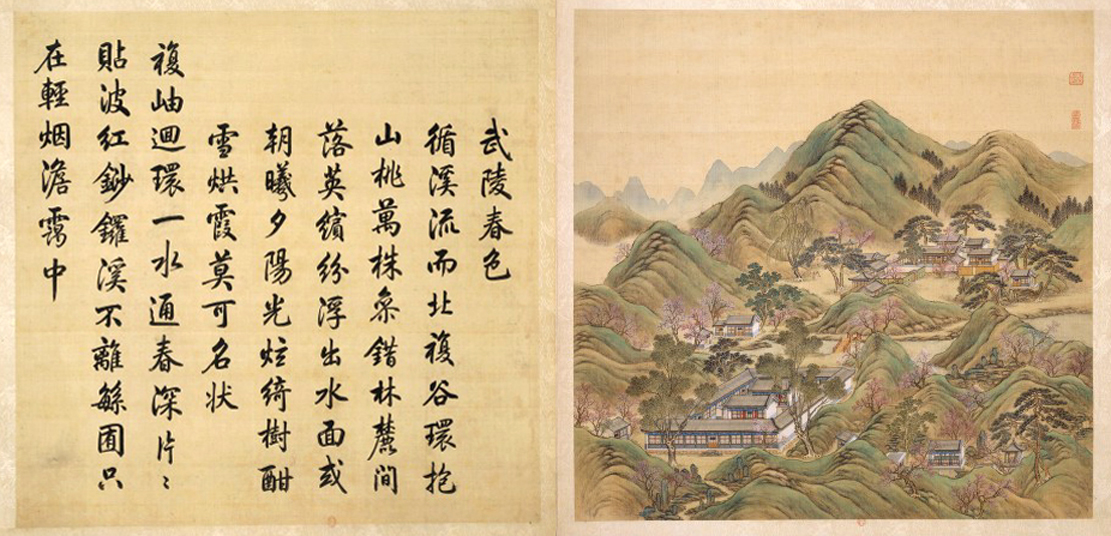 武陵春色
循溪流而北複谷環抱
山桃萬株叅錯林麓間
落英繽紛浮出水面或
朝曦夕陽光炫綺樹酣
雪烘霞莫可名状
複岫迴環一水通春深片〻
貼波紅鈔鑼溪不離繇囿只
在輕烟澹靄中